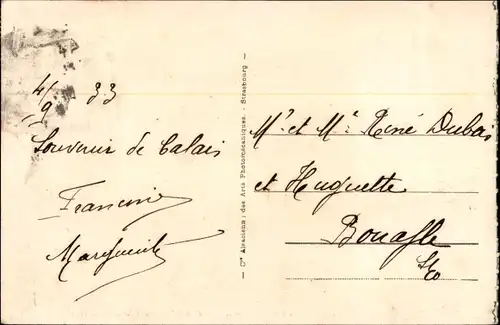 4/9 33
Souvenir de Calais
Francine
Marguerite
Cie Alsacienne des Arts Photomécaniques - Strasbourg
Mr et Me René Dubois
et Huguette
Bouafle
S/O